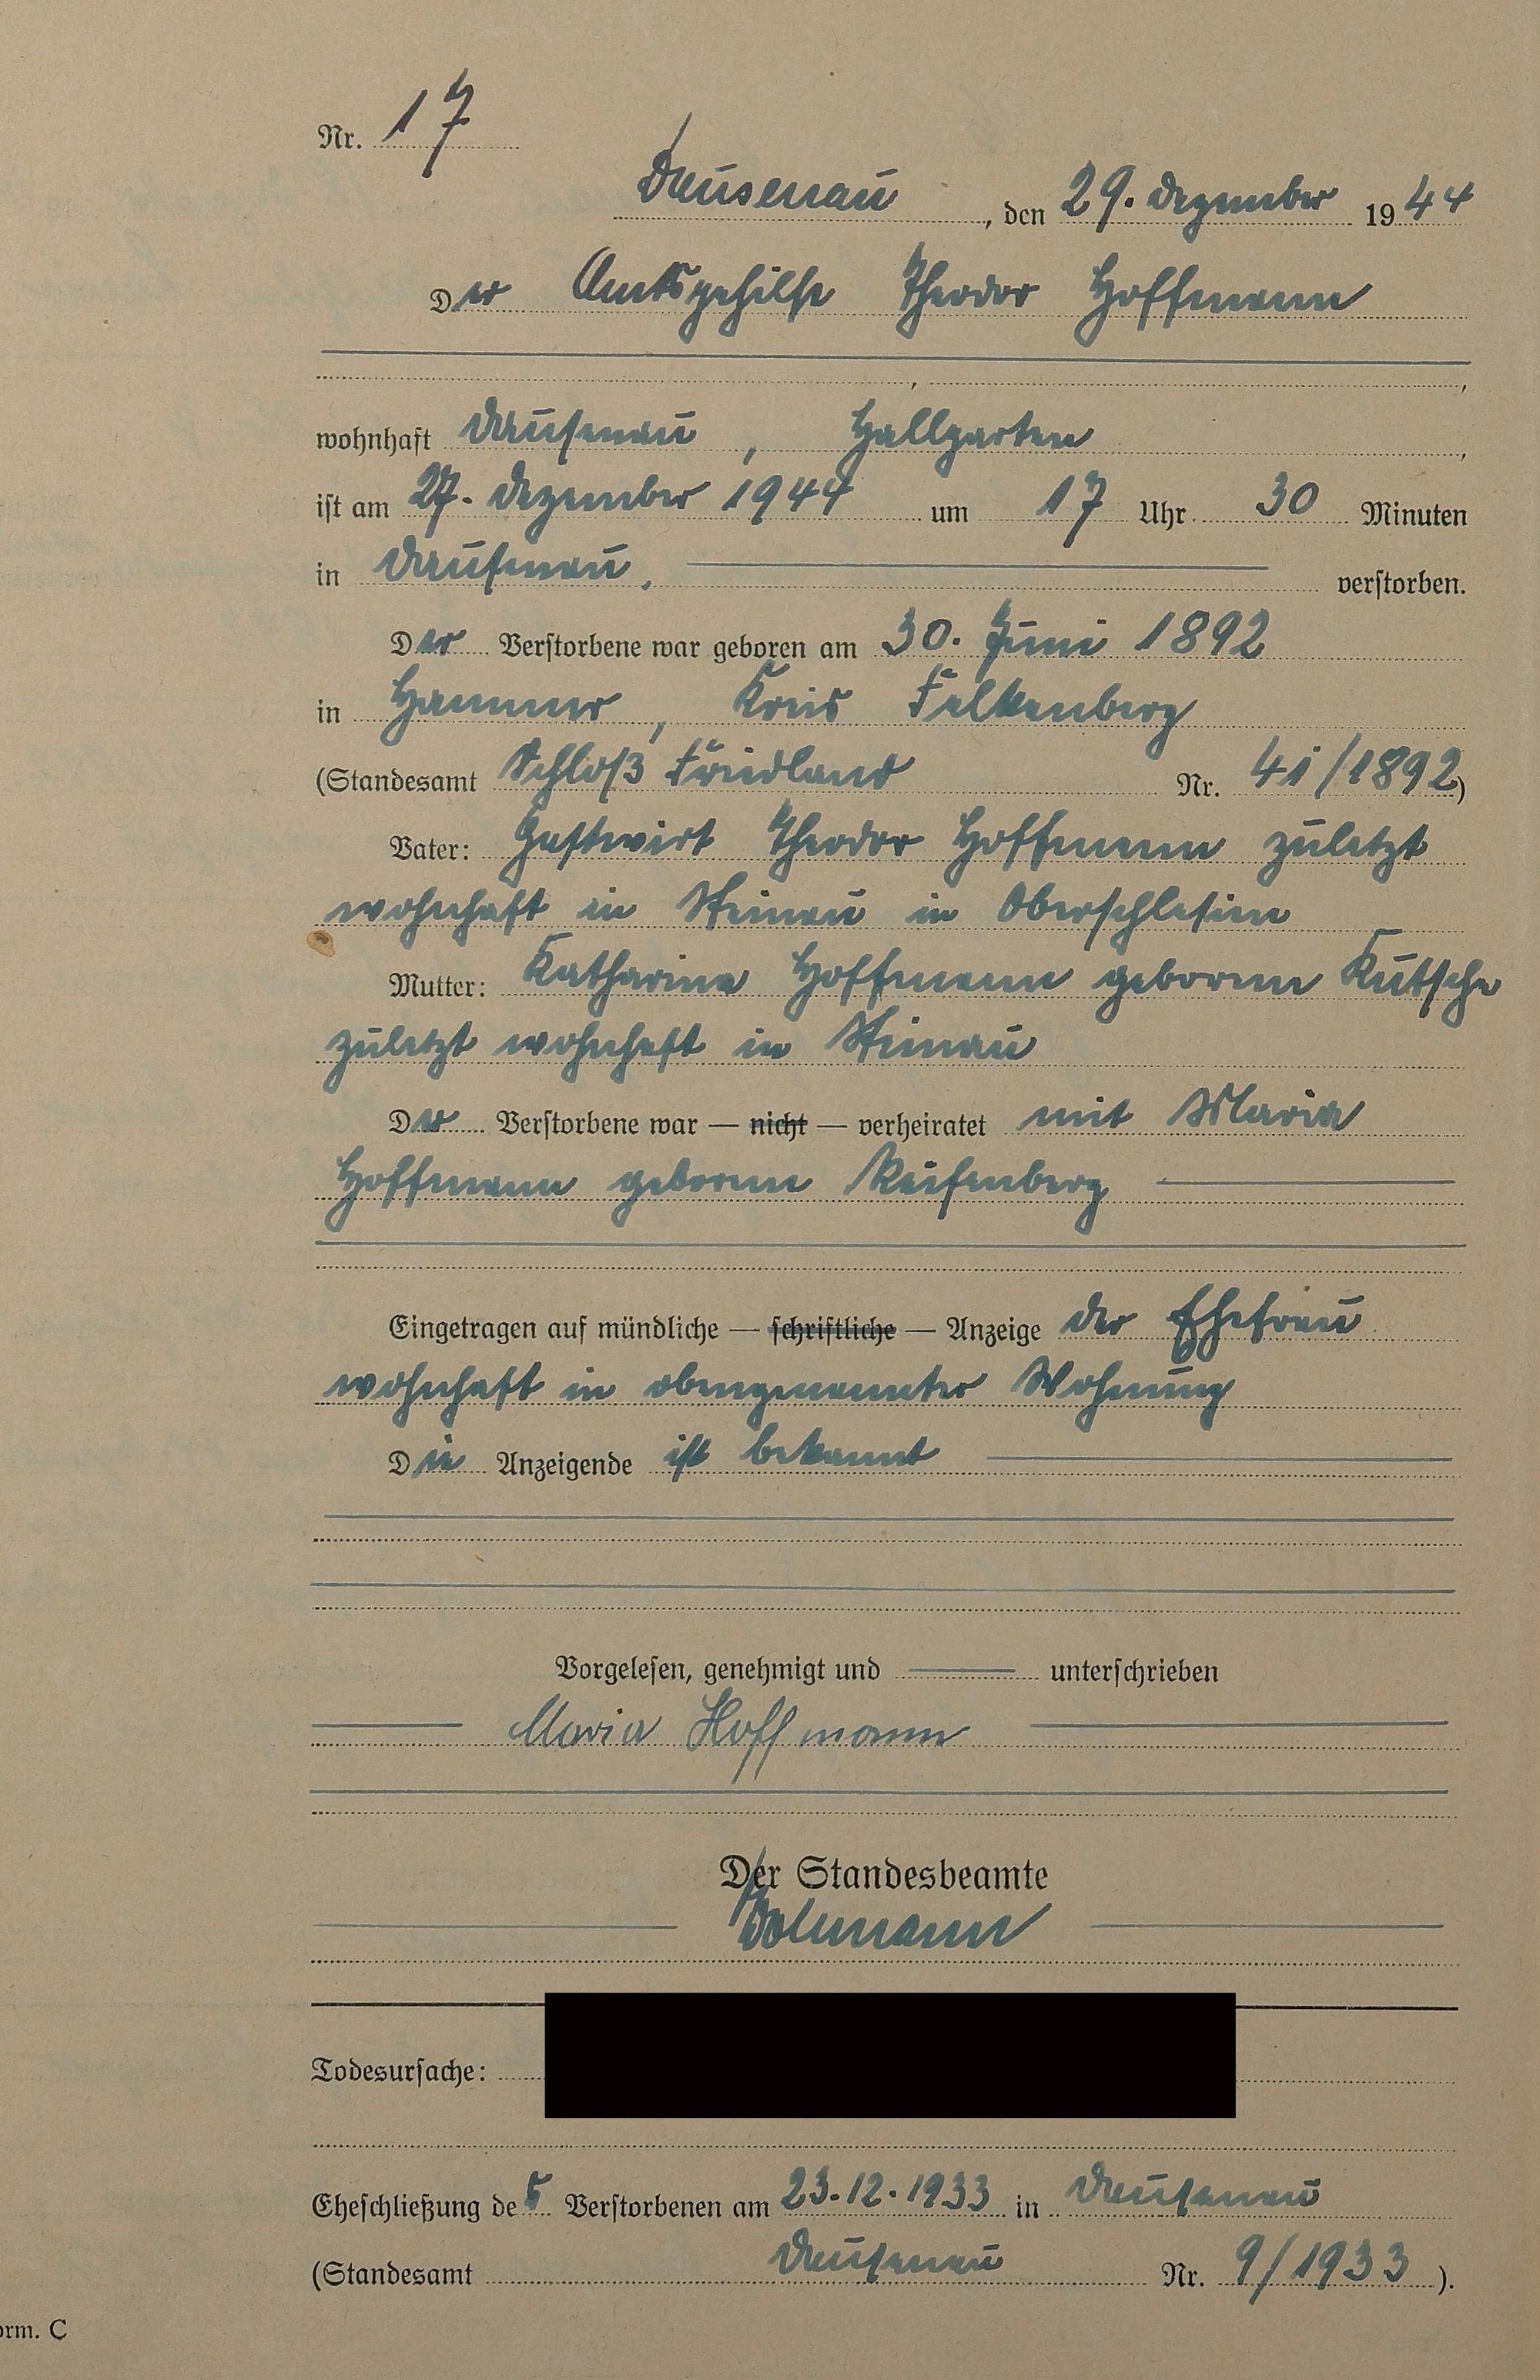 Nr. 17
Dausenau, den 29. Dezember 1944
Der Amtsgehilfe Theodor Hoffmann
wohnhaft Dausenau, Hallgarten
ist am 27. Dezember 1944 um 17 Uhr 30 Minuten
in Dausenau, verstorben.
Der Verstorbene war geboren am 30. Juni 1892
in Hammer, Kreis Falkenberg
(Standesamt Schloß Friedland Nr. 41/1892)
Vater: Gastwirt Theodor Hoffmann zuletzt
wohnhaft in Steinau in Oberschlesien
Mutter: Katharina Hoffmann geborene Kutsche
zuletzt wohnhaft in Steinau
Der Verstorbene war — nicht — verheiratet mit Maria
Hoffmann geborene Reifenberg
Eingetragen auf mündliche — schriftliche — Anzeige der Ehefrau
wohnhaft in obengenannter Wohnung
Die Anzeigende ist bekannt
Vorgelesen, genehmigt und unterschrieben
Maria Hoffmann
Der Standesbeamte
Todesursache:
Eheschließung des Verstorbenen am 23.12.1933 in Dausenau
(Standesamt Dausenau Nr. 9/1933).
orm. C